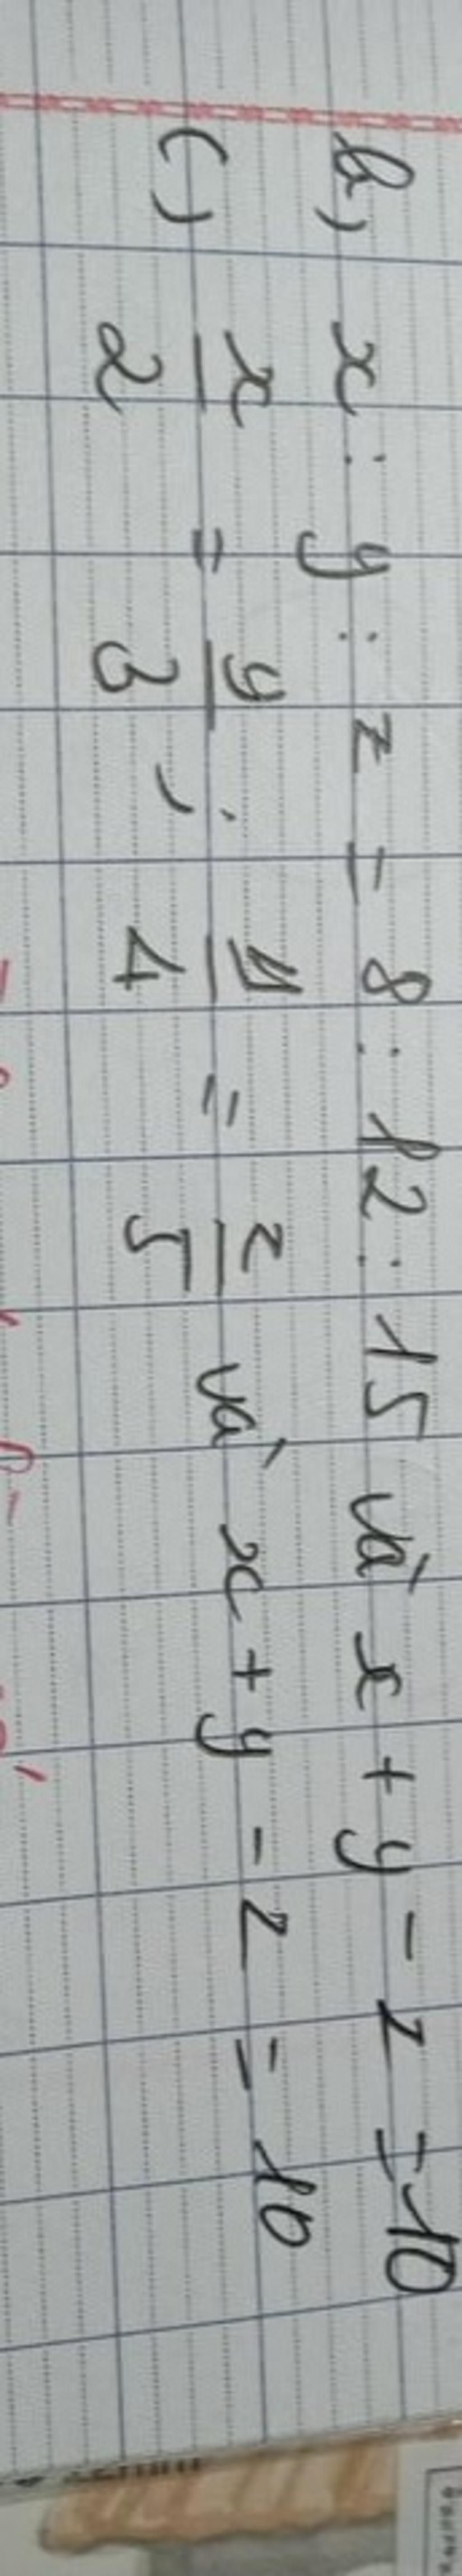 b, x : y : z = 8 : 12 : 15 và x + y - z = 10
c) x/2 = y/3 ; y/4 = z/5 và x + y - z = 10